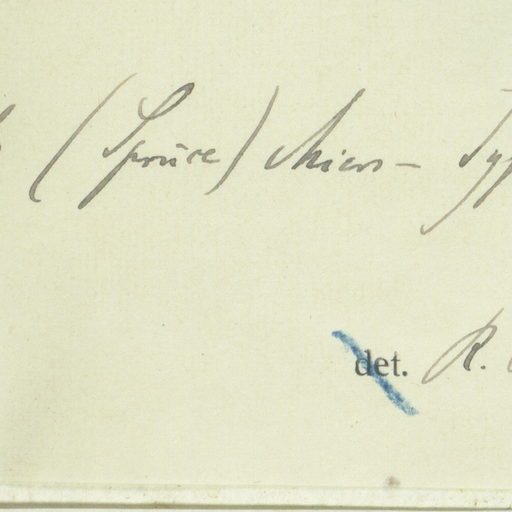 (Spruce) Miers – Typ
det. R.